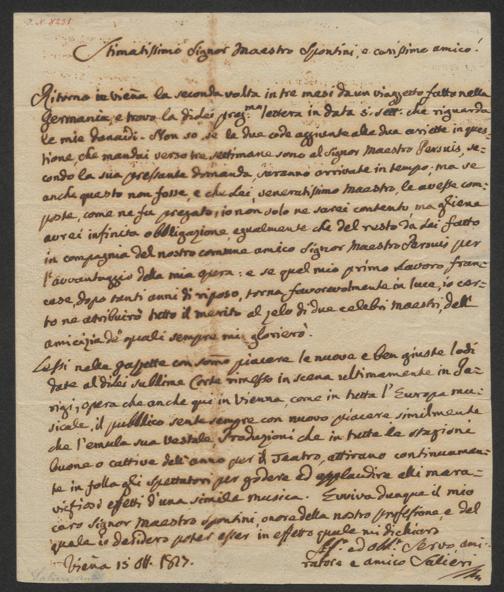 I. N. 8231
Stimatissimo Signor Maestro Spontini, e carissimo amico!
Ritorno in Vieña la seconda volta in tre mesi da un viaggetto fatto nella
Germania, e trovo la di lei preg.ma lettera in data 5. Sett. che riguarda
le mie Danaidi. Non so, se le due code aggiunte alle due ariette in ques-
tione che mandai verso tre settimane sono al Signor Maestro Persuis, se-
condo la sua pressante domanda, saranno arrivate in tempo; ma se
anche questo non fosse, e che Lei, veneratissimo Maestro, le avesse com-
poste, come ne fu pregato; io non solo ne sarei contento, ma gliene
aurei infinita obbligazione, egualmente che del resto da Lei fatto
in compagnia del nostro comune amico Signor Maestro Persuis per
l'avvantaggio della mia opera: e se quel mio primo Lavoro fran-
cese, dopo tanti anni di riposo, torna favorevolmente in luce, io cer-
to ne attribuirò tutto il merito al zelo di due celebri maestri, dell'
amicizia de' quali sempre mi glorierò.
Lessi nelle gazzette con sommo piacere le nuove e ben giuste lodi
date al di lei sublime Cortez rimesso in scena ultimamente in Pa-
rigi, opera che anche qui in Vienna, come in tutta l'Europa mu-
sicale, il pubblico sente sempre con nuovo piacere similmente
che l'emula sua Vestale, Produzioni che in tutte le stagioni
buone o cattive dell'anno per il Teatro, attirano continuamen-
te in folla gli spettatori per godere ed applaudire alli mera-
vigliosi effetti d'una simile musica. Evviva dunque il mio
caro Signor Maestro Spontini, onore della nostra professione, e del
quale io desidero poter esser in effetto quale mi dichiaro
Aff. ed obb. Servo, ami-
Vieña 15 Ott. 1817.
ratore e amico Salieri